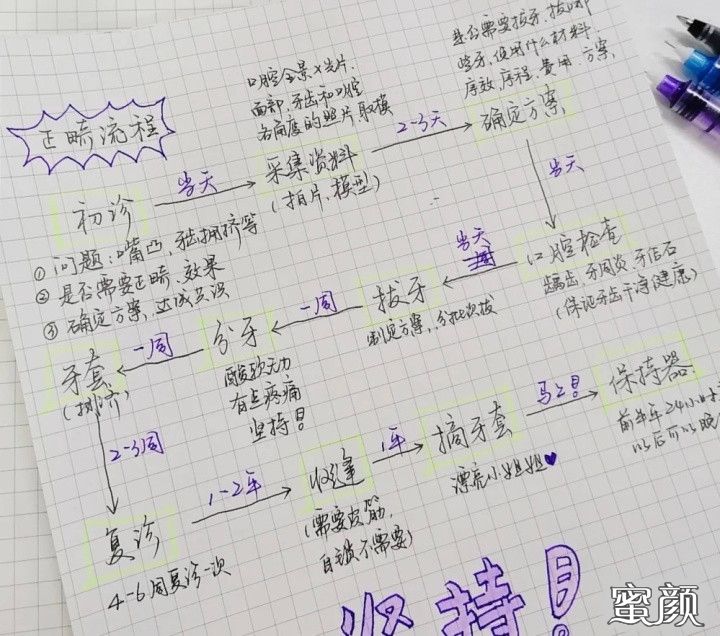 正畸流程
初诊
① 问题:嘴凸,牙齿拥挤等
② 是否需要正畸,效果
③ 确定方案,达成共识
当天
口腔全景X光片.
面部、牙齿和口腔
各角度的照片取模
采集资料
(拍片、模型)
2-3天
是否需要拔牙,拔哪
些牙,使用什么材料,
疗效、疗程、费用、方案
确定方案
当天
口腔检查
龋齿、牙周炎、牙结石
(保证牙齿干净健康)
当天
拔牙
制定方案,分批次拔
一周
分牙
酸软无力
有点疼痛
坚持!
一周
牙套
(排齐)
2-3周
复诊
4-6周复诊一次
1-2年
收缝
(需要皮筋,
自锁不需要)
1年
摘牙套
漂亮小姐姐
马上!
保持器
前半年24小时
以后可以晚
坚持!
蜜颜